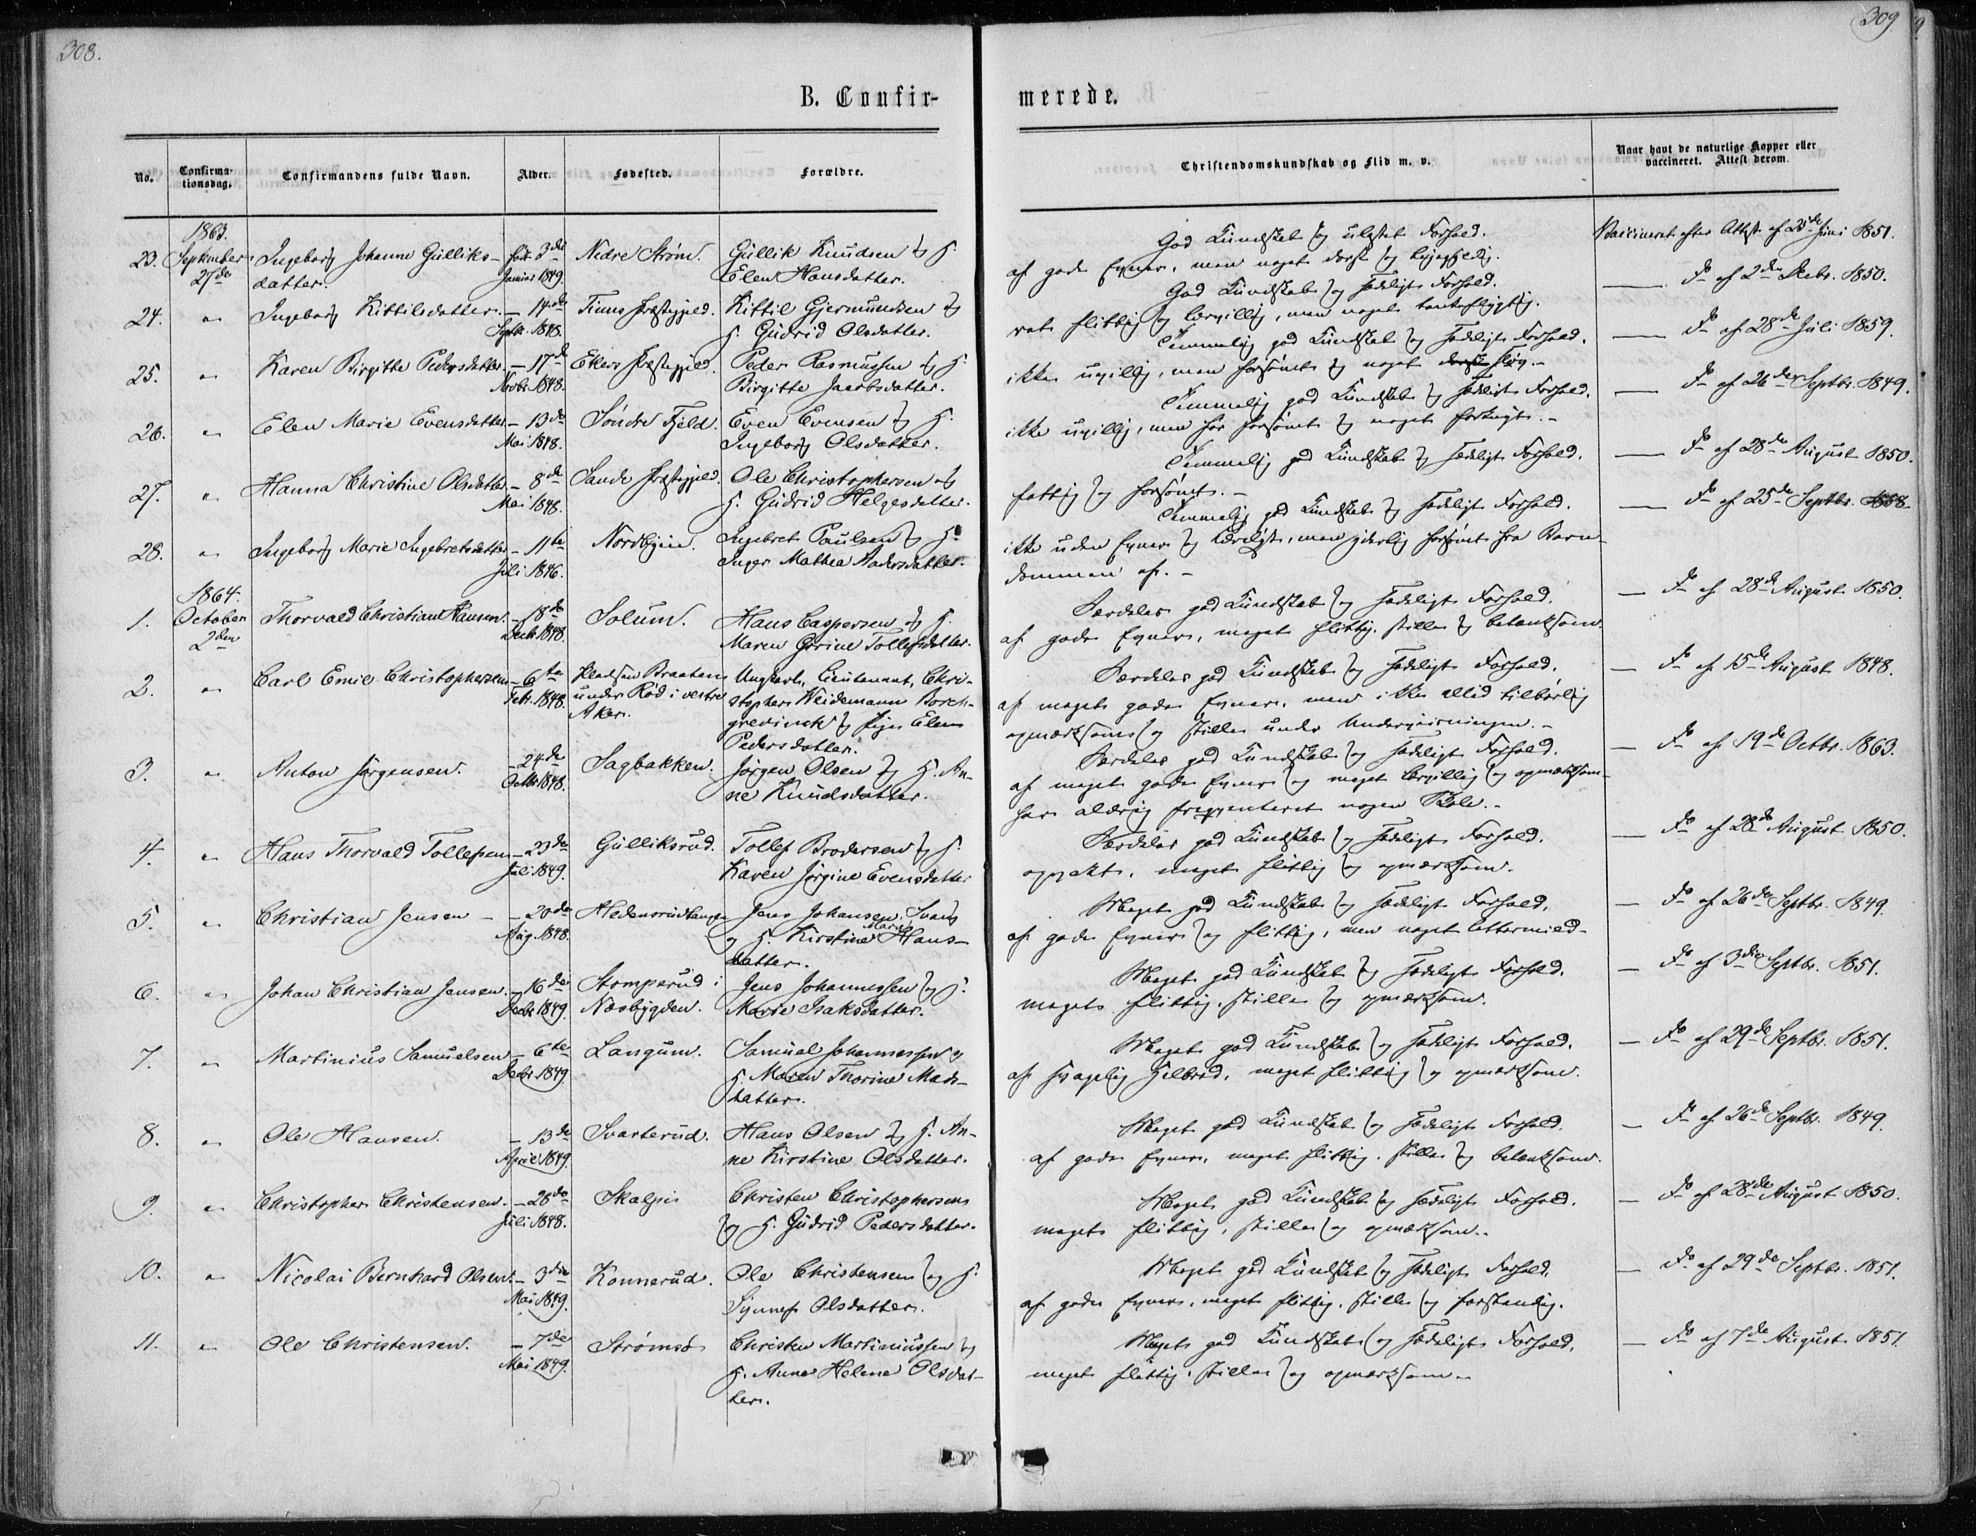 308.
309
B. Confir-
merede.
No.
Confirma-
tionsdag.
Confirmandens fulde Navn.
Alder.
Fødested.
Forældre.
Christendomskundskab og Flid m. v.
Naar havt de naturlige Kopper eller
vaccineret. Attest derom.
1863.
23. September Ingeborg Johanne Gulliks- født 3die Nedre Strøm. Gullik Knudsen og H.
27de datter. Januar 1849. Elen Hansdatter.
God Kundskab og ulastet Forhold.
af gode Evner, men noget
Vaccineret efter Attest af 25de Juni 1851.
24. " Ingeborg Kittilsdatter. - 14de Tinns Præstegjeld. Kittil Gjermundsen og
Septbr. 1848. H. Gudrid Olsdatter.
God Kundskab og sædeligt Forhold.
flittig og lærvillig, men noget tankeflygtig.
Do af 2den Decbr. 1850.
25. " Karen Birgitte Pedersdatter. - 17de Ekers Præstegjeld. Peder Rasmussen og H.
Novbr. 1848. Birgitte Jacobsdatter.
Temmelig god Kundskab og sædeligt Forhold.
ikke uvillig, men forsømt og noget sløv.
Do af 28de Juli 1859.
26. " Elen Marie Evensdatter - 13de Søndre Fjeld. Even Evensen og H.
Mai 1848. Ingeborg Olsdatter.
Temmelig god Kundskab og sædeligt Forhold.
ikke uvillig, men har forsømt og noget
Do af 26de Septbr. 1849.
27. " Hanna Christine Olsdatter - 8de Sande Præstegjeld. Ole Christophersen og
Mai 1848. H. Gudrid Helgesdatter.
Temmelig god Kundskab og sædeligt Forhold.
fattig og forsømt. -
Do af 28de August 1850.
28. " Ingeborg Marie Ingebretsdatter - 11te Nordbyeie. Ingebret Paulsen og H.
Juli 1846. Inger Mathea Andersdatter.
Temmelig god Kundskab og sædeligt Forhold.
ikke uden Evner og men yderlig forsømt fra Barn-
dommen af. -
Do af 25de Septbr. 1858.
1864.
1. October Thorvald Christian Hansen. - 18de Solum. Hans Caspersen og H.
2den Decb. 1848. Maren Gurine Tollefsdatter.
Særdeles god Kundskab og sædeligt Forhold.
af gode Evner, meget flittig, stille og betænksom.
Do af 28de August 1850.
2. " Carl Emil Christophersen - 6te Pladsen Braaten Ungkarl, Lieutenant, Chri-
Febr. 1848. under Rød i vestre stopher Weidemann Borch-
Aker. grevinck og Pige Elen
Pedersdatter.
Særdeles god Kundskab og sædeligt Forhold.
af meget gode Evner, men ikke altid tilbørlig
opmærksom og stille under Undervisningen. -
Do af 15de August 1848.
3. " Anton Jørgensen. - 24de Sagbakken. Jørgen Olsen og H. An-
Octbr. 1848. ne Knudsdatter.
Særdeles god Kundskab og sædeligt Forhold.
af meget gode Evner og meget lærvillig og opmærksom-
har aldrig freqventeret nogen Skole. -
Do af 19de Octbr. 1863.
4. " Hans Thorvald Tollefsen - 23de Gulliksrud. Tollef Brodersen og H.
Juli 1849. Karen Jørgine Evensdatter
Særdeles god Kundskab og sædeligt Forhold.
opvakt, meget flittig og opmærksom.
Do af 28de August 1850.
5. " Christian Jensen - - 20de Hedensrudhaugen Jens Johansen Svang
Aug. 1848. og H. Kirstine Marie Hans-
datter.
Meget god Kundskab og sædeligt Forhold.
af gode Evner og flittig, men noget
Do af 26de Septbr. 1849.
6. " Johan Christian Jensen. - 16de Stomperud i Jens Johannessen og H.
Decbr. 1849. Næsbygden. Marie Isaksdatter.
Meget god Kundskab og sædeligt Forhold.
meget flittig, stille og opmærksom.
Do af 3die Septbr. 1851.
7. " Martinius Samuelsen - 6te Langum. Samuel Johannessen og
Decbr. 1849 H. Maren Thorine Mads-
datter.
Meget god Kundskab og sædeligt Forhold.
af svagelig Helbred, meget flittig og opmærksom.
Do af 29de Septbr. 1851.
8. " Ole Hansen. - 13de Svarterud. Hans Olsen og H. An-
April 1849. ne Kirstine Olsdatter.
Meget god Kundskab og sædeligt Forhold.
af gode Evner, meget flittig, stille og betænksom.
Do af 26de Septbr. 1849.
9. " Christopher Christensen. - 28de Skalpis Christen Christophersen
Juli 1848. og H. Gudrid Pedersdatter.
Meget god Kundskab og sædeligt Forhold.
meget flittig, stille og opmærksom.
Do af 28de August 1850.
10. " Nicolai Bernhard Olsen. - 3die Konnerud. Ole Christensen og H.
Mai 1849. Synnef Olsdatter.
Meget god Kundskab og sædeligt Forhold.
af gode Evner, meget flittig, stille og forstandig.
Do af 29de Septbr. 1851.
11. " Ole Christensen. - 7de Strømsø Christen Martiniussen og
Mai 1849. H. Anne Helene Olsdat-
ter.
Meget god Kundskab og sædeligt Forhold.
meget flittig, stille og opmærksom.
Do af 7de August 1851.